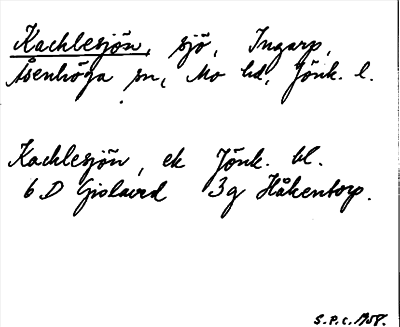 Kachlesjön, sjö, Ingarp,
Åsenhöga sn, Mo hd, Jönk. l.
Kachlesjön, ek Jönk. bl.
6 D Gislaved 3g Håkentorp.
S.P.C. 1958.